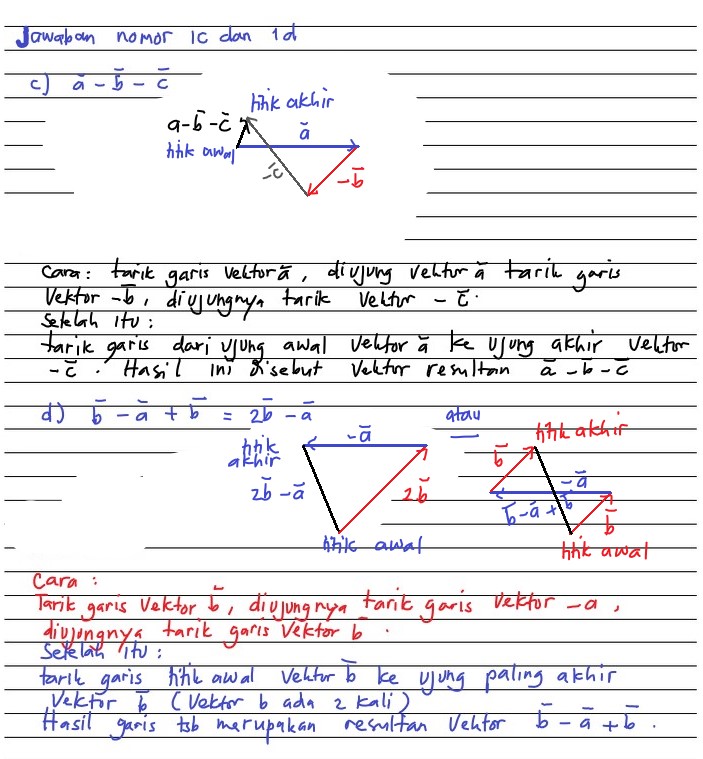 Jawaban nomor 1c dan 1d
c) ā - b̄ - c̄
titik akhir
a - b̄ - c̄
ā
titik awal
-c̄
-b̄
Cara : tarik garis vektor ā , diujung vektor ā tarik garis
Vektor -b̄ , diujungnya tarik Vektor - c̄.
Setelah itu :
tarik garis dari ujung awal Vektor ā ke ujung akhir Vektor
-c̄ . Hasil ini disebut Vektor resultan ā - b̄ - c̄
d) b̄ - ā + b̄ = 2b̄ - ā
atau
-ā
titik
akhir
2b̄ - ā
2b̄
titik awal
titik akhir
b̄
-ā
b̄ - ā + b̄
b̄
titik awal
Cara :
Tarik garis Vektor b̄ , diujungnya tarik garis Vektor -a ,
diujungnya tarik garis Vektor b̄ .
Setelah itu :
tarik garis titik awal Vektor b̄ ke ujung paling akhir
Vektor b̄ (Vektor b ada 2 kali)
Hasil garis tsb merupakan resultan Vektor b̄ - ā + b̄ .